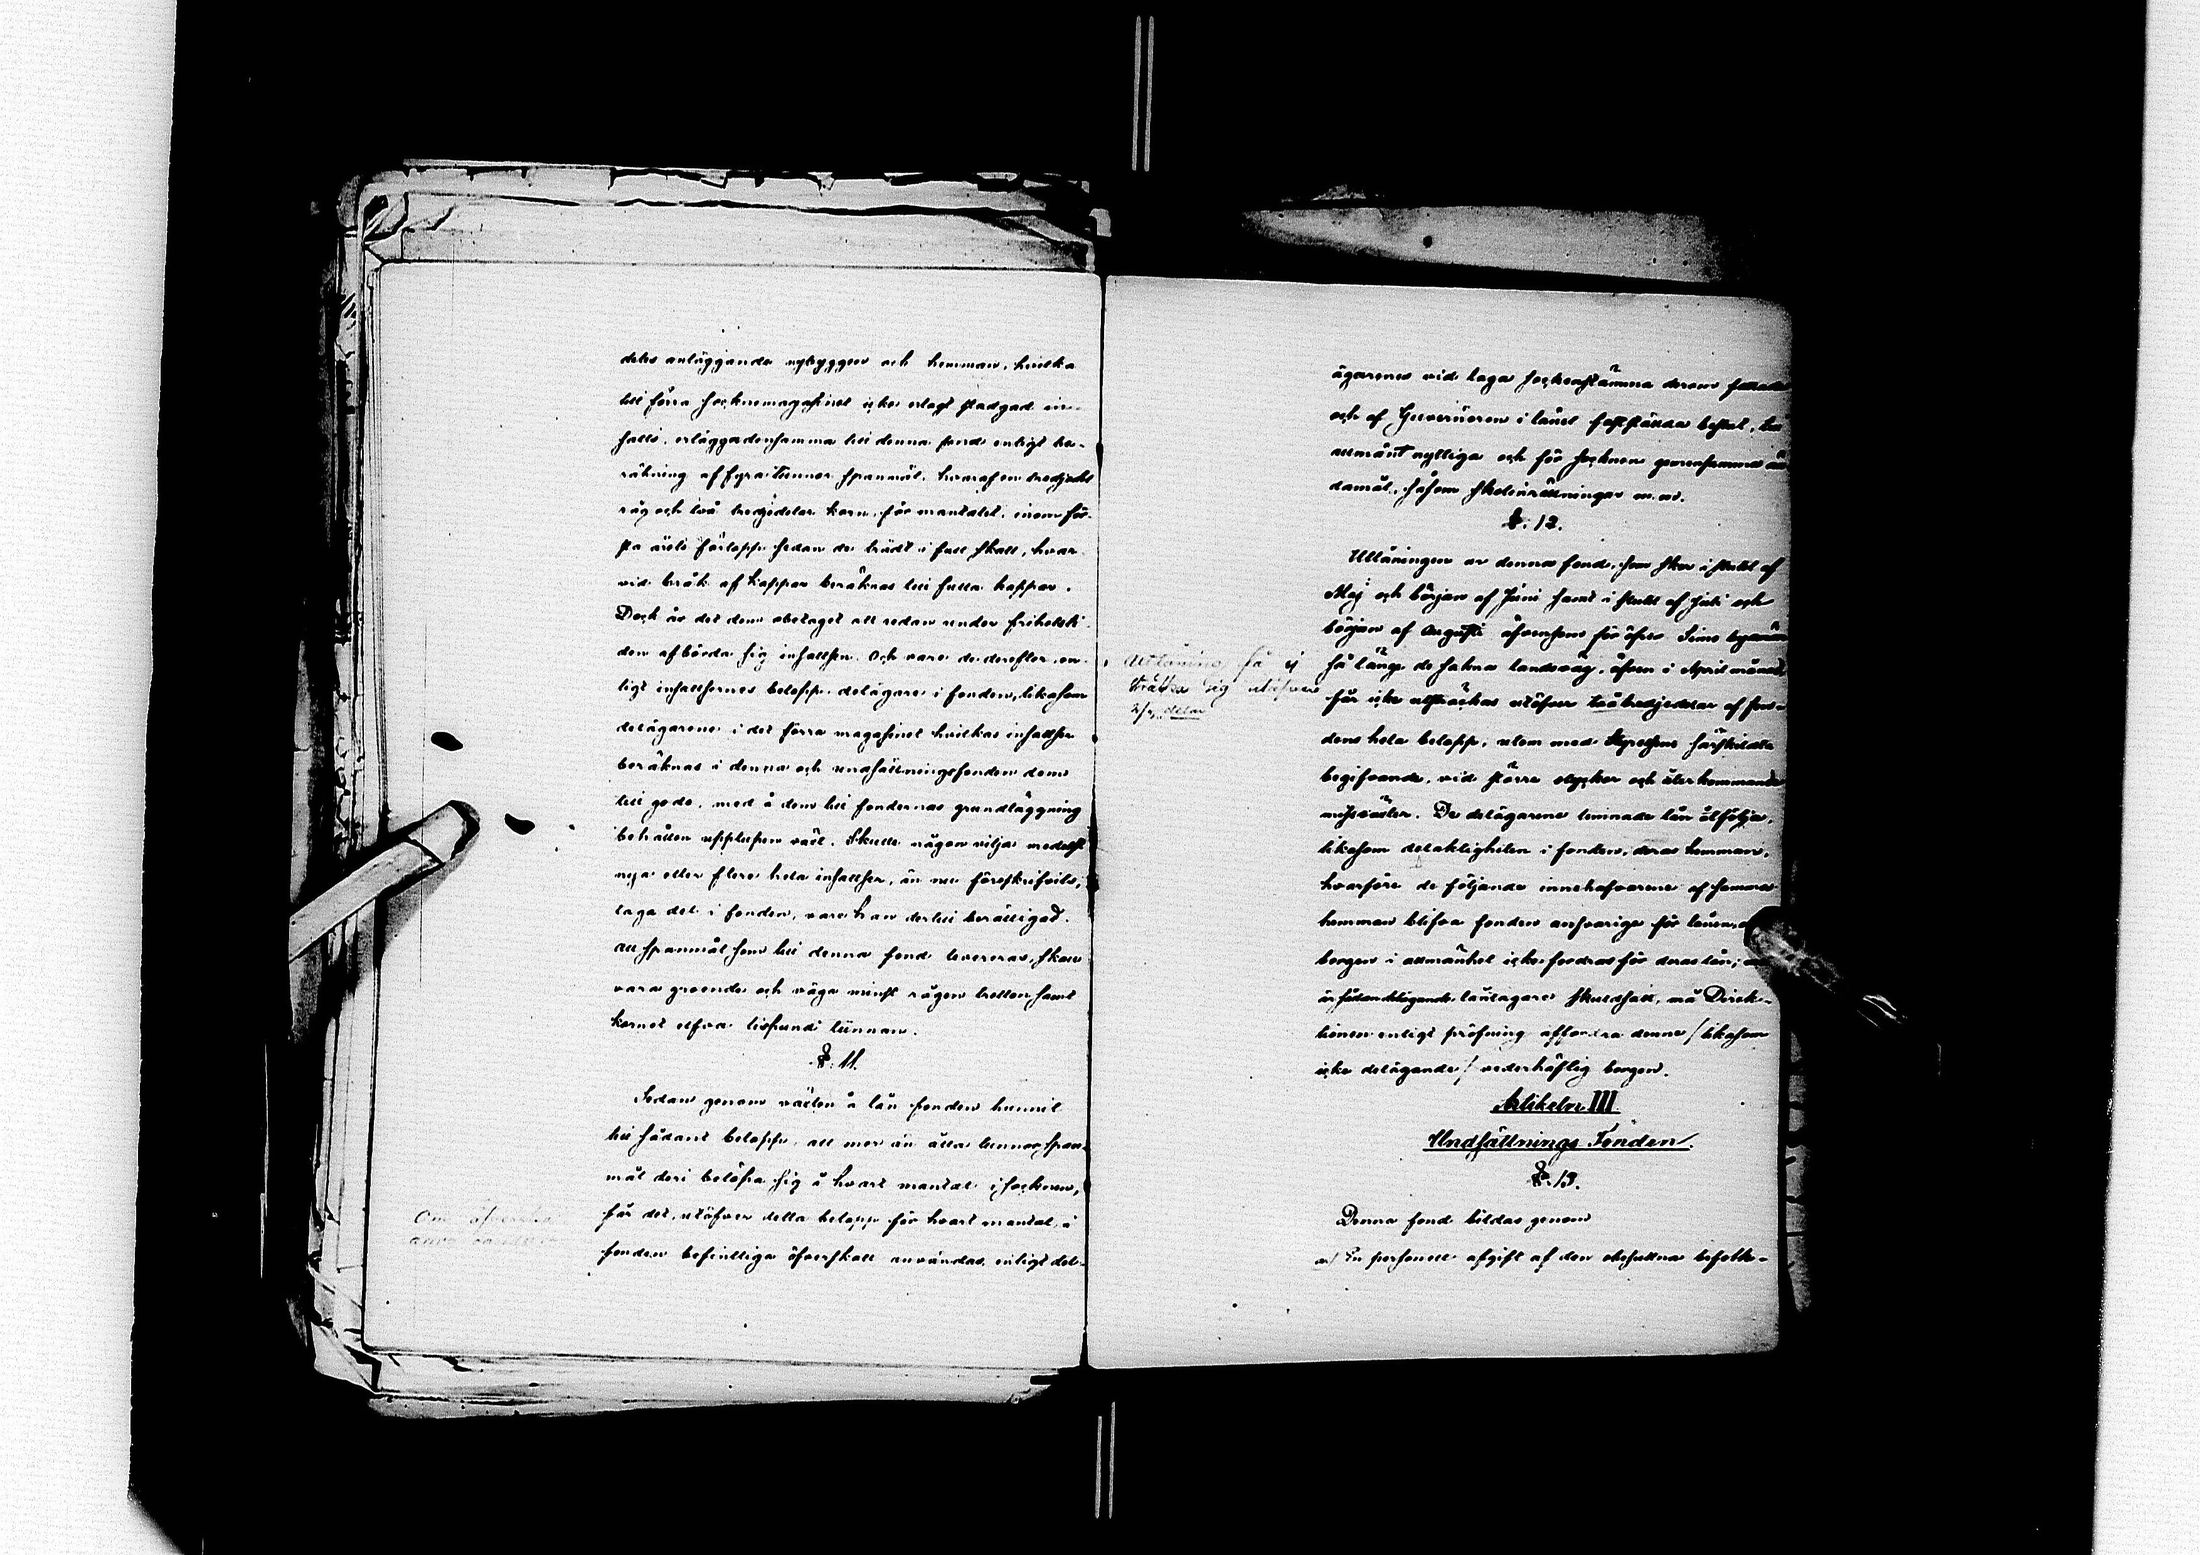 deles anläggande nybyggen och hemman, hvilka
till förra sockne magasinet icke erlagt stadgad in-
satts, erlägga densamma till denna fond enligt be-
räkning af fyra tunnor spanmål, hvaraf en tredjedel
råg och två tredjedelar korn, för mantalet, inom för-
sta årets förlopp sedan de trädt i full skatt, hvar-
vid bråk af kappar beräknas till fulla kappar.
Dock är det dem obetaget att redan under frihetsti-
den afbörda sig insattsen. Och vare de derefter en-
ligt insatsernes belopp delägare i fonden, likasom
delägarene i det förra magasinet hvilkas insattser
beräknas i denna och undsättningsfonden dem
till godo, med å dem till fondernas grundläggning
behållen upplupen växt. Skulle någon vilja medelst
nya eller flere hela insattser, än nu föreskrifvits,
taga del i fonden, vare han dertill berättigad.
All spanmål som till denna fond levereras, skall
vara groende och väga minst rågen tretton samt
kornet elfva lispund tunnan.
§. 11.
Sedan genom växten å lån fonden hunnit
till sådant belopp, att mer än åtta tunnor span-
mål deri belöpa sig å hvart mantal i socknen,
får det, utöfver detta belopp för hvart mantal, i
fonden befintliga öfverskott användas, enligt del-
Om öfverskott
ägarenes vid laga sockenstämma derom fattade
och af Guvernören i länet fastställda beslut, till
allmänt nyttiga och för socknen gemensamma än-
damål, såsom skolinrättningar m. m.
§. 12.
Utlåningen ur denna fond, som sker i slutet af
Maj och början af Juni samt i slutet af Juli och
början af Augusti äfvensom för öfre Simo byamän
så länge de sakna landsväg, äfven i April månad,
får icke utsträckas utöfver två tredjedelar af fon-
dens hela belopp, utom med Styrelsens särskilda
begifvande, vid större olyckor och återkommande
missväxter. De delägarene lemnade lån åtfölja,
likasom delaktigheten i fonden, deras hemman,
hvarföre de följande innehafvarene af samma
hemman blifva fonden ansvariga för lånen,
borgen i allmänhet icke fordras för deras lån;
är sådan delägande låntagare skuldsatt, må Direk-
tionen enligt pröfning affordra denne / likasom
icke delägande / vederhäftig borgen.
Utlåning få ej
sträcka sig utöfver
2/3 delar
Artikeln III
Undsättnings Fonden.
§. 13.
Denna fond bildas genom
a) En personell afgift af den obesuttna befolk-